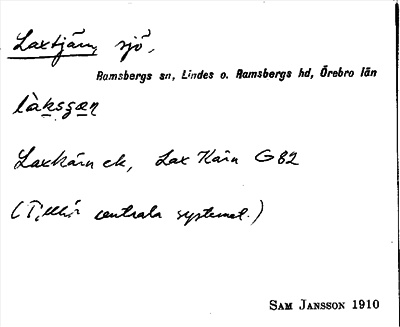 Laxtjärn, sjö,
Ramsbergs sn, Lindes o. Ramsbergs hd, Örebro län
làksɟæn
Laxkärn ek, Lax Kärn G 82
(Tillhör centrala systemet.)
SAM JANSSON 1910